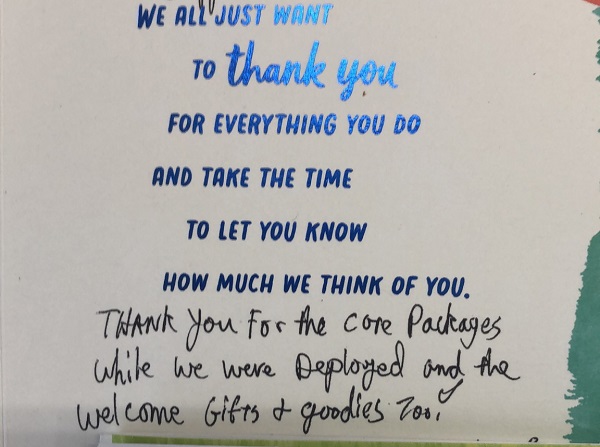 WE ALL JUST WANT
TO thank you
FOR EVERYTHING YOU DO
AND TAKE THE TIME
TO LET YOU KNOW
HOW MUCH WE THINK OF YOU.
THANK You For the Care Packages
while we were Deployed and the
welcome Gifts & goodies Too!